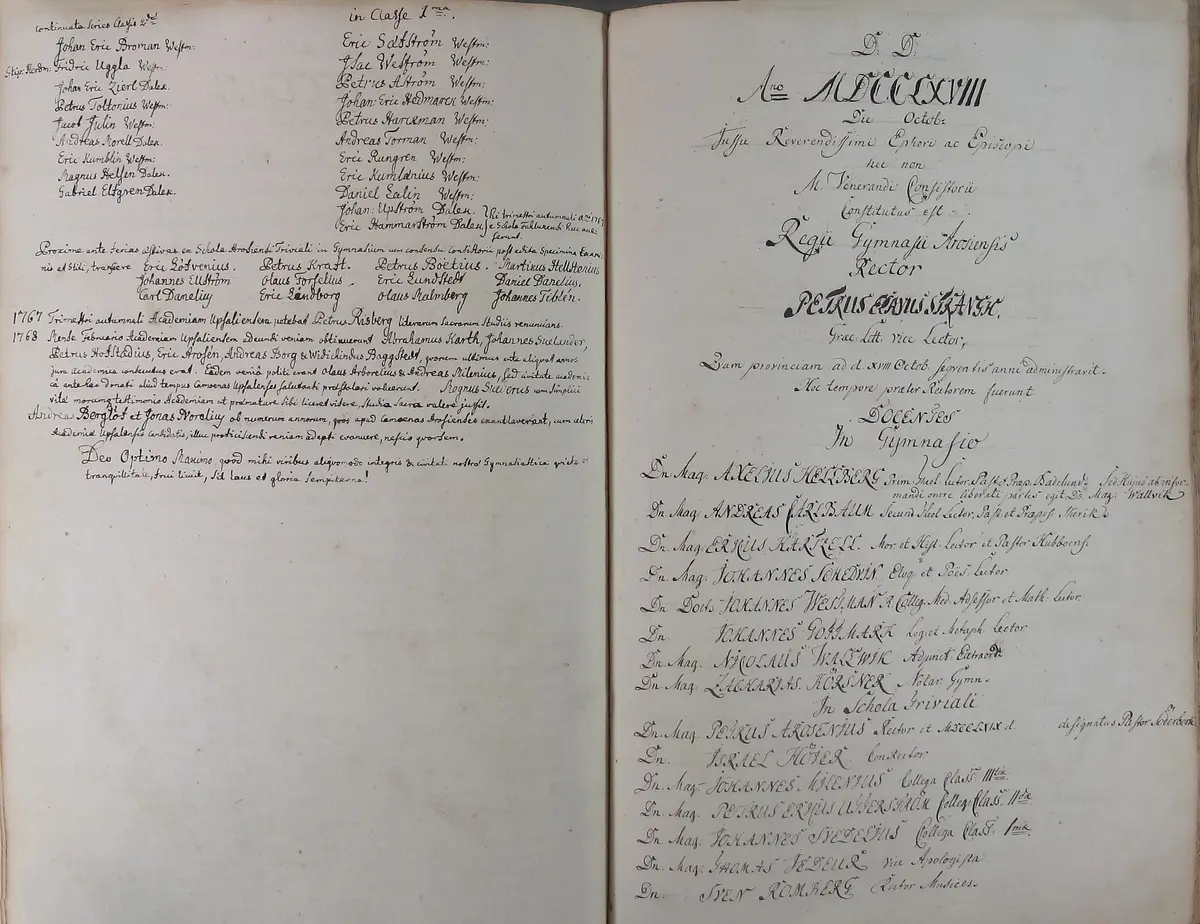 Continuata Series Classis 2dæ
Johan Eric Broman Westm:
Fridric Uggla Westm:
Johan Eric Zierl Dalek.
Petrus Toltonius Westm:
Jacob Julin Westm:
Andreas Morell Dalek.
Eric Kumblin Westm:
Magnus Helsen Dalek.
Gabriel Elfgren Dalek.
in Classe 1ma.
Eric Sätström Westm:
Isac Weström Westm:
Petrus Åström Westm:
Johan: Eric Hedmaren Westm:
Petrus Harckman Westm:
Andreas Torman Westm:
Eric Rungren Westm:
Eric Kumlænius Westm:
Daniel Salin Westm:
Johan: Upström Dalek.
Eric Hammarström Dalek.
Hi trimestri autumnali a:o 1767
e Schola Fahlunensi huc
ferunt.
Proxime ante ferias æstivas ex Schola Arosiensi Triviali in Gymnasium cum consensu Consistorii post edita Specimina Exami-
nis et Stili, transiere Eric Löfvenius. Petrus Kraft. Petrus Boëtius. Martinus Hellstenius
Johannes Ellström Olaus Forselius. Eric Lundstedt Daniel Danelius.
Carl Daneliuſ Eric Låndborg Olaus Malmberg Johannes Siblén.
1767 Trimestri autumnali Academiam Upsaliensem petebat Petrus Risberg literarum sacrarum Studiis renuncians.
1768 Mense Februario Academiam Upsaliensem adeundi veniam obtinuerunt Abrahamus Karth, Johannes Suelander,
Petrus Hofstadius, Eric Arosén, Andreas Borg & Widichindus Baggstedt, quorum ultimus ante aliquot annos
jura academica consecutus erat. Eadem venia politi erant Olaus Arborelius & Andreas Milenius, sed civitate academi-
ca ante hac donati aliud tempus Camœnas Upsalenses Salutandi præstolari voluerunt. Magnus Suederus cum simplici
vitæ morumq; testimonio Academiam ut præmature sibi liceret videre, studia sacra valere jussit.
Andreas Berglöf et Jonas Noreliuſ ob numerum annorum, quos apud Camœnas Arosienses exantlaverant, cum alteri
Academiæ Upsaliensis candidatis, illuc proficiscendi veniam adepti evanuere, nescio quorsum.
Deo Optimo Maximo quod mihi viribus aliquomodo integris & civitati nostræ Gymnasiasticæ quiete et
tranquillitate, frui licuit, Sit laus et gloria Sempiterna!
D. D.
Ano MDCCLXVIII
Die Octob.
Jussu Reverendissimi Ephori ac Episcopi
nec non
M. Venerandi Consistorii
Constitutus est
Regii Gymnasii Arosiensis
Rector
PETRUS ERICUS STRANDH,
Græc. Litt. vice Lector,
Quam provinciam ad d. XVIII Octob. segventis anni administravit.
Hoc tempore præter Rectorem fuerunt
DOCENTES
In Gymnasio
Dn. Mag: AXELIUS HELLBERG Prim. Theol. Lector, Past. & Præp. Badelund. Sed Hujus ab infor-
mandi onere liberati partes egit Dn. Mag. Wallvik
Dn. Mag: ANDREAS CARLBAUM Secund. Theol. Lector, Past. et Præpos.
Dn. Mag: ERICUS HARTZELL. Mor. et Hist. Lector et Pastor Hubboens.
Dn. Mag: JOHANNES SCHEDVIN Eloq. et Poës. Lector
Dn. Doct. JOHANNES WESSMAN R. Colleg. Med. Adsessor et Math. Lector
Dn. JOHANNES GOTTMARK Log. et Metaph. Lector
Dn. Mag. NICOLAUS WALLWIK Adjunct. Extraord.
Dn. Mag. ZACHARIAS HÖRSNER Notar. Gymn.
In Schola Triviali
Dn. Mag. PETRUS AROSENIUS Rector et MDCCLXIX d. designatus Pastor Söderberk
Dn. ISRAEL HÖIER ConRector
Dn. Mag. JOHANNES MILENIUS Collega Class. IIItiæ
Dn. Mag. PETRUS ERICUS UPPERSTRÖM Colleg. Class. IIdæ
Dn. Mag: JOHANNES SVEDELIUS Collega Class. 1mæ
Dn. Mag: THOMAS FEDEUR vice Apologista
Dn. SVEN ROMBERG Rector Musices.